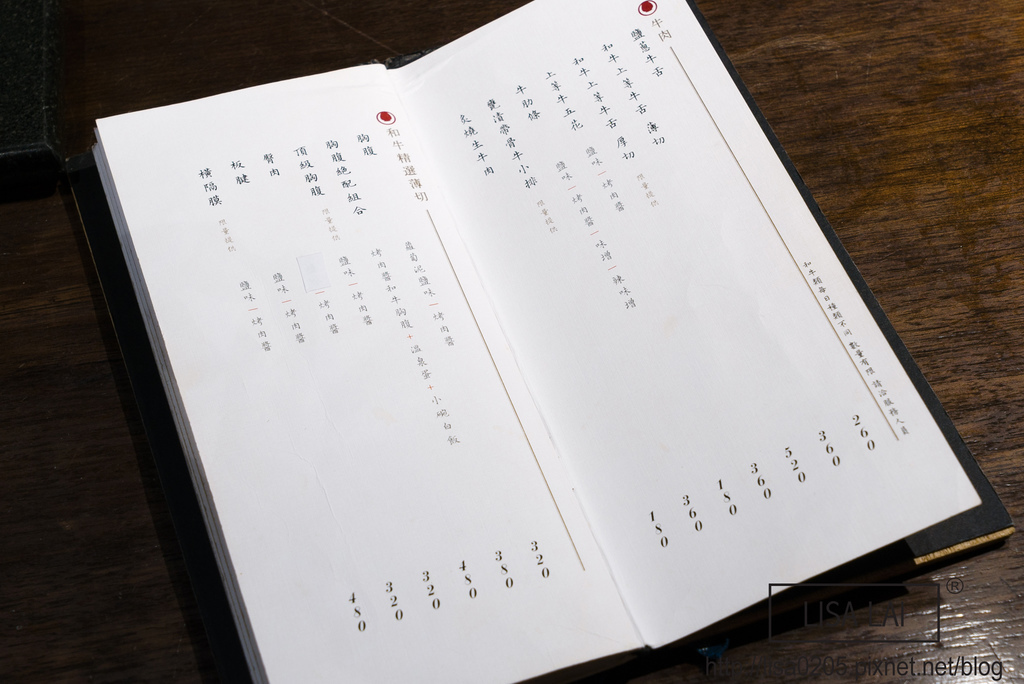 牛肉
和牛類每日種類不同 數量有限 請洽服務人員
鹽蔥牛舌 260
和牛上等牛舌 薄切 限量提供 360
和牛上等牛舌 厚切 520
上等牛五花 鹽味|烤肉醬 360
牛肋條 鹽味|烤肉醬|味增|辣味增 180
甕漬帶骨牛小排 限量提供 360
炙燒生牛肉 180
和牛精選薄切
胸腹 蘿蔔泥鹽味|烤肉醬 320
胸腹絕配組合 烤肉醬和牛胸腹+溫泉蛋+小碗白飯 380
頂級胸腹 限量提供 鹽味|烤肉醬 480
臀肉 烤肉醬 320
板腱 鹽味|烤肉醬 320
橫隔膜 限量提供 鹽味|烤肉醬 480
LISA LAI ®
pixnet.net/blog